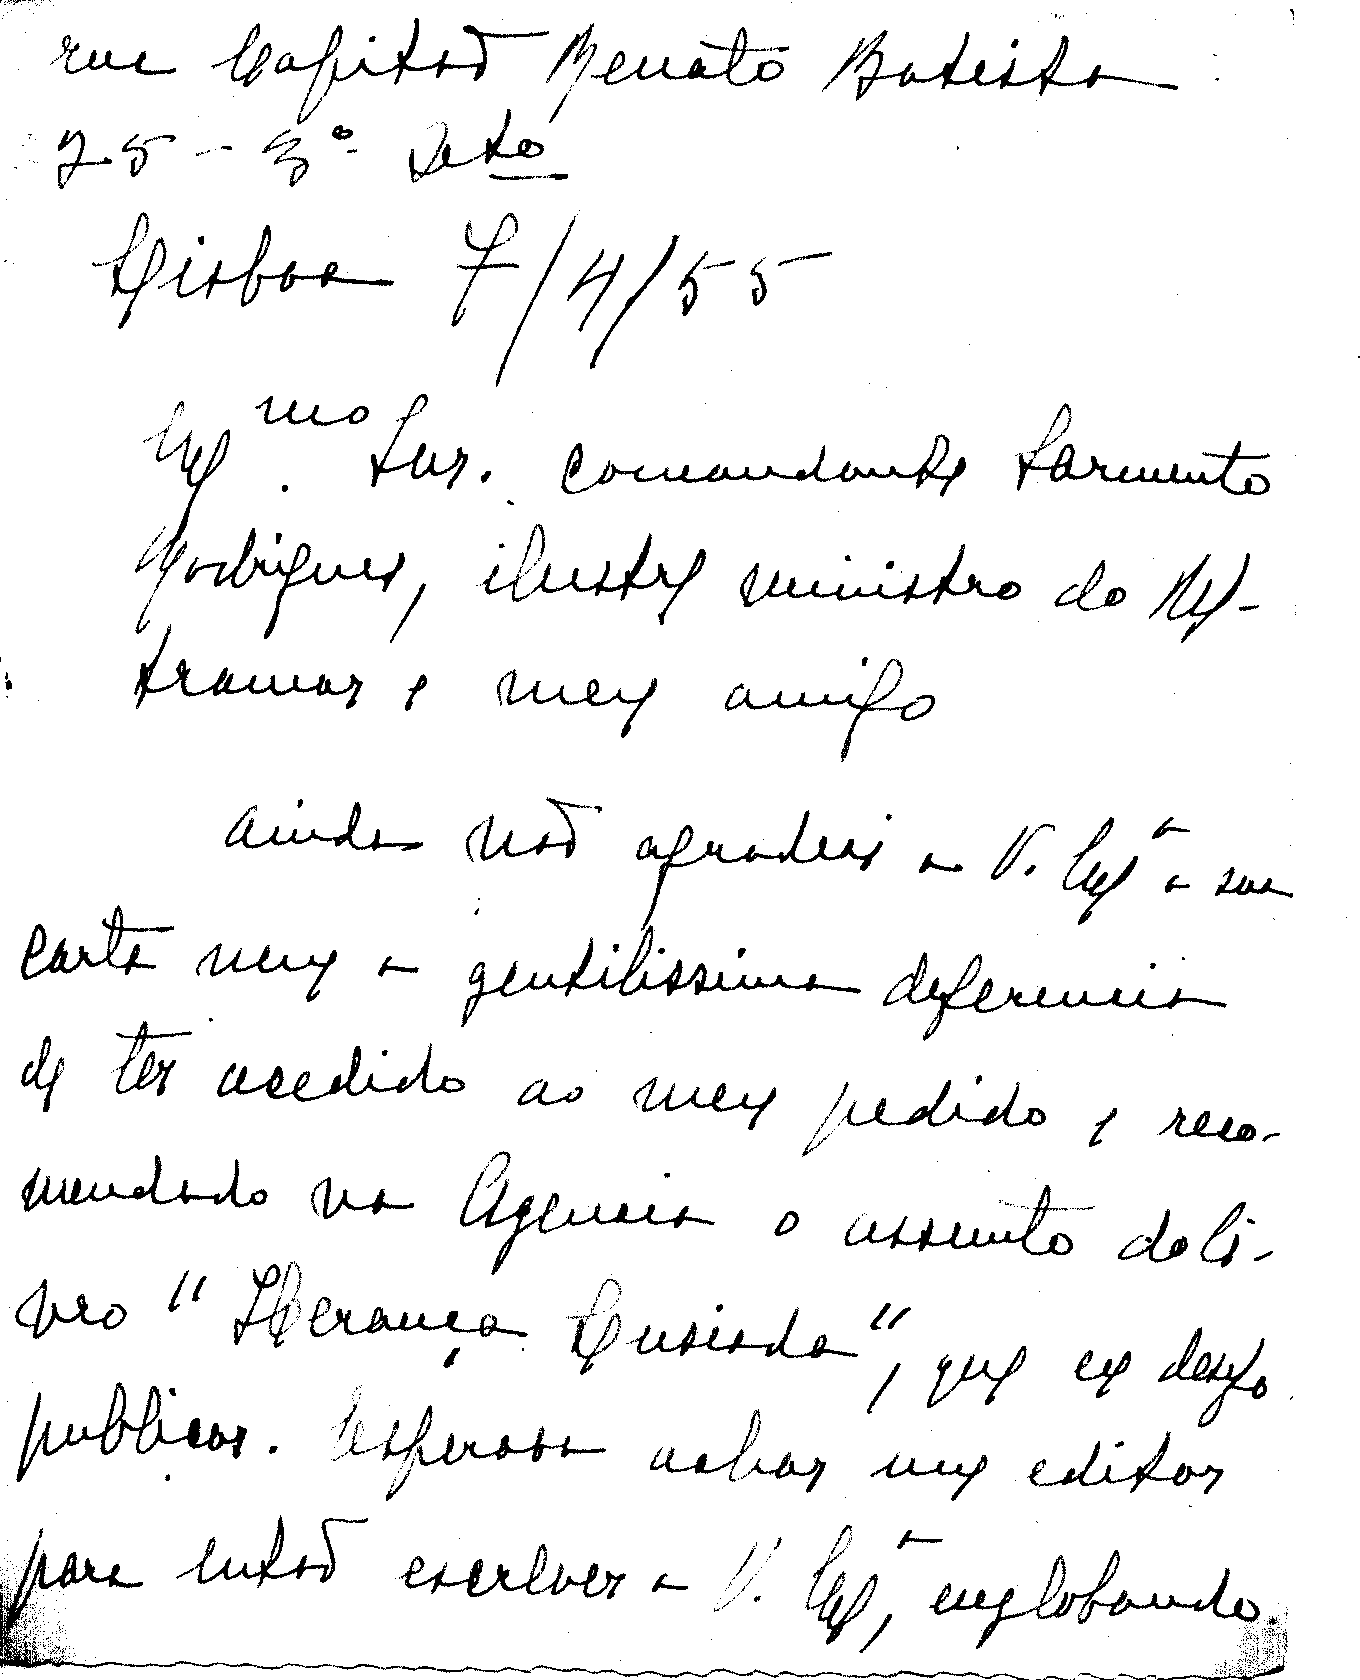 rua Capitão Renato Batista
25 - 3º Dto
Lisboa 7/4/55
Exmo. Snr. Comandante Sarmento
Rodrigues, ilustre ministro do Ul-
tramar e meu amigo
Ainda não agradeci a V. Exª a sua
carta nem a gentilissima deferencia
de ter acedido ao meu pedido e reco-
mendado na Agencia o assunto do li-
vro "Herança Lusiada", que eu desejo
publicar. Esperava achar um editor
para então escrever a V. Exª, englobando